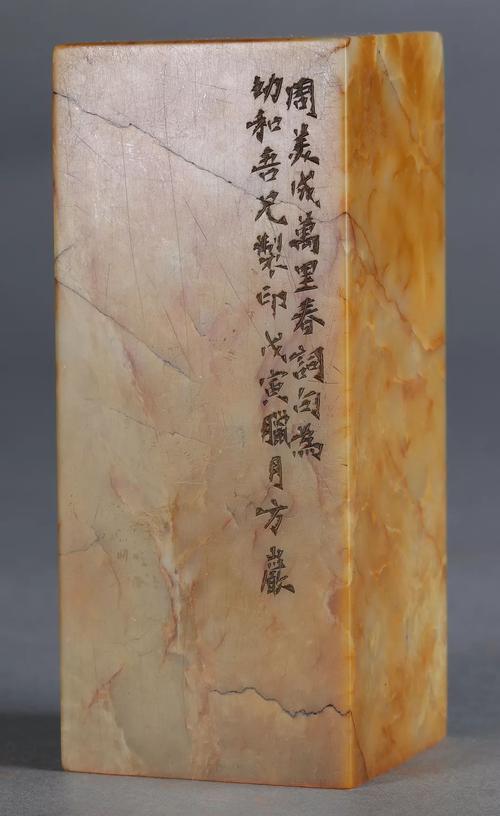 周美成萬里春詞句為
幼和吾兄製印戊寅臘月方巖